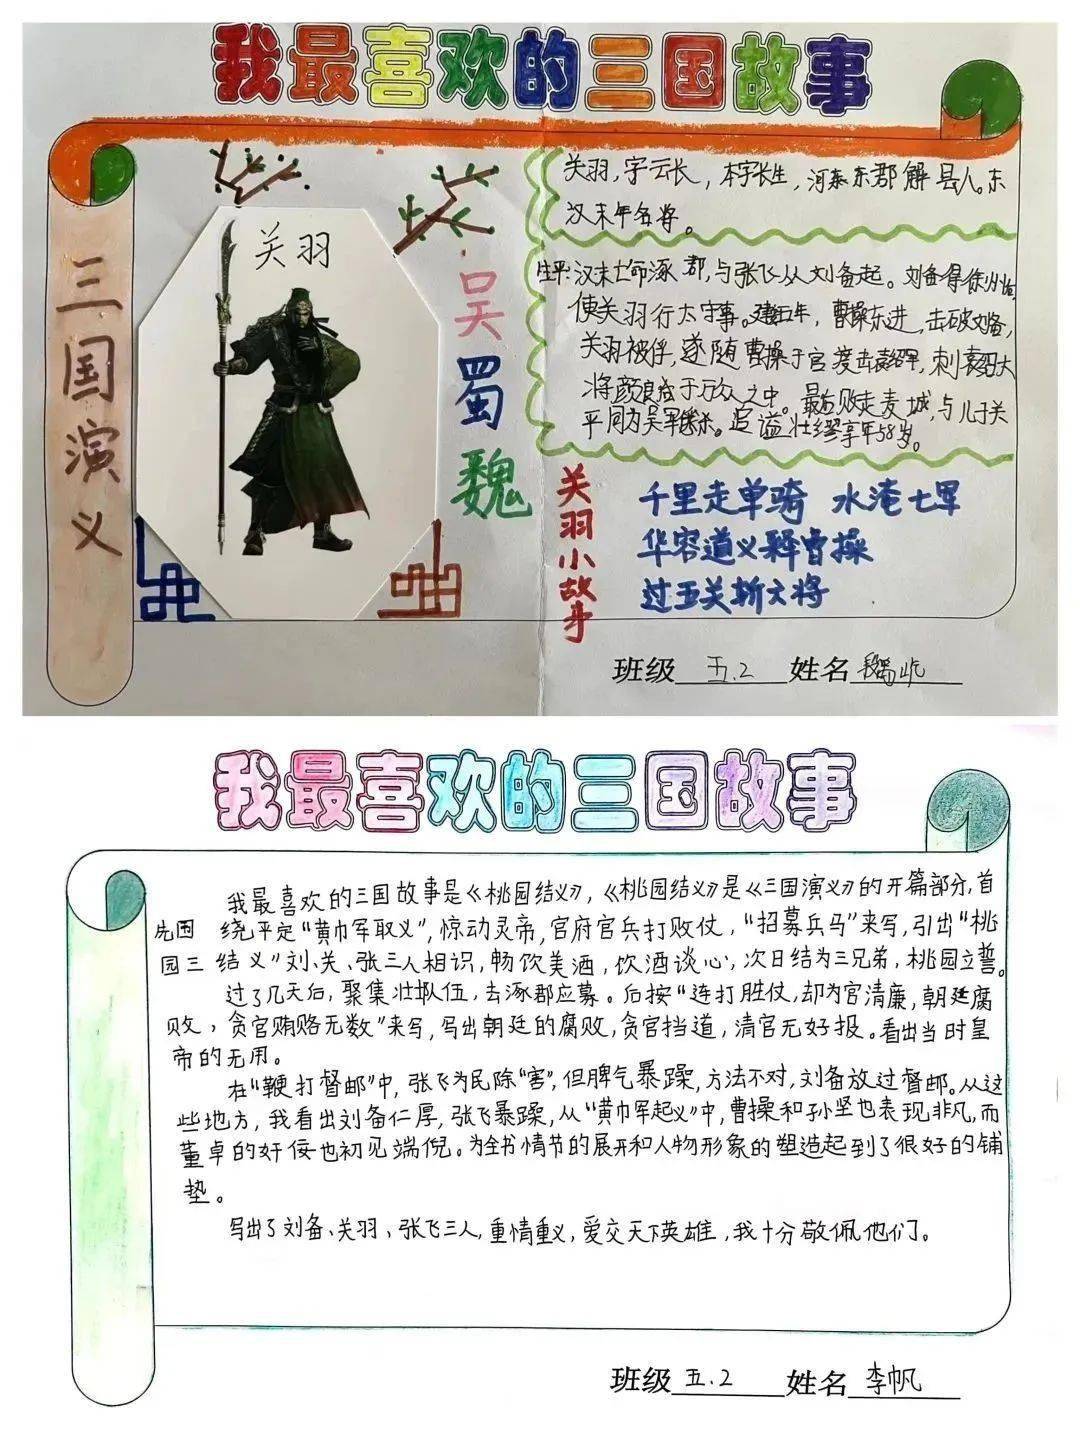 我最喜欢的三国故事
三国演义
关羽
吴
蜀
魏
关羽，字云长，本字长生，河东东郡解县人。东
汉末年名将。
生平：汉末亡命涿郡，与张飞从刘备起。刘备得徐州后，
使关羽行太守事。建安五年，曹操东进，击破刘备，
关羽被俘，遂随曹操于官渡击袁绍军，刺袁绍大
将颜良于万众之中。最后败走麦城，与儿子关
平同为吴军杀。追谥壮缪享年58岁。
关羽小故事
千里走单骑 水淹七军
华容道义释曹操
过五关斩六将
班级 五.2 姓名
我最喜欢的三国故事
我最喜欢的三国故事是《桃园结义》，《桃园结义》是《三国演义》的开篇部分，首
先围绕平定“黄巾军取义”，惊动灵帝，官府官兵打败仗，“招募兵马”来写，引出“桃
园三结义”刘、关、张三人相识，畅饮美酒，饮酒谈心，次日结为三兄弟，桃园立誓。
过了几天后，聚集壮队伍，去涿郡应募。后按“连打胜仗，却为官清廉，朝廷腐
败，贪官贿赂无数”来写，写出朝廷的腐败，贪官挡道，清官无好报。看出当时皇
帝的无用。
在“鞭打督邮”中，张飞为民除“害”，但脾气暴躁，方法不对，刘备放过督邮。从这
些地方，我看出刘备仁厚，张飞暴躁，从“黄巾军起义”中，曹操和孙坚也表现非凡，而
董卓的奸佞也初见端倪。为全书情节的展开和人物形象的塑造起到了很好的铺
垫。
写出了刘备、关羽、张飞三人，重情重义，爱交天下英雄，我十分敬佩他们。
班级 五.2 姓名 李帆